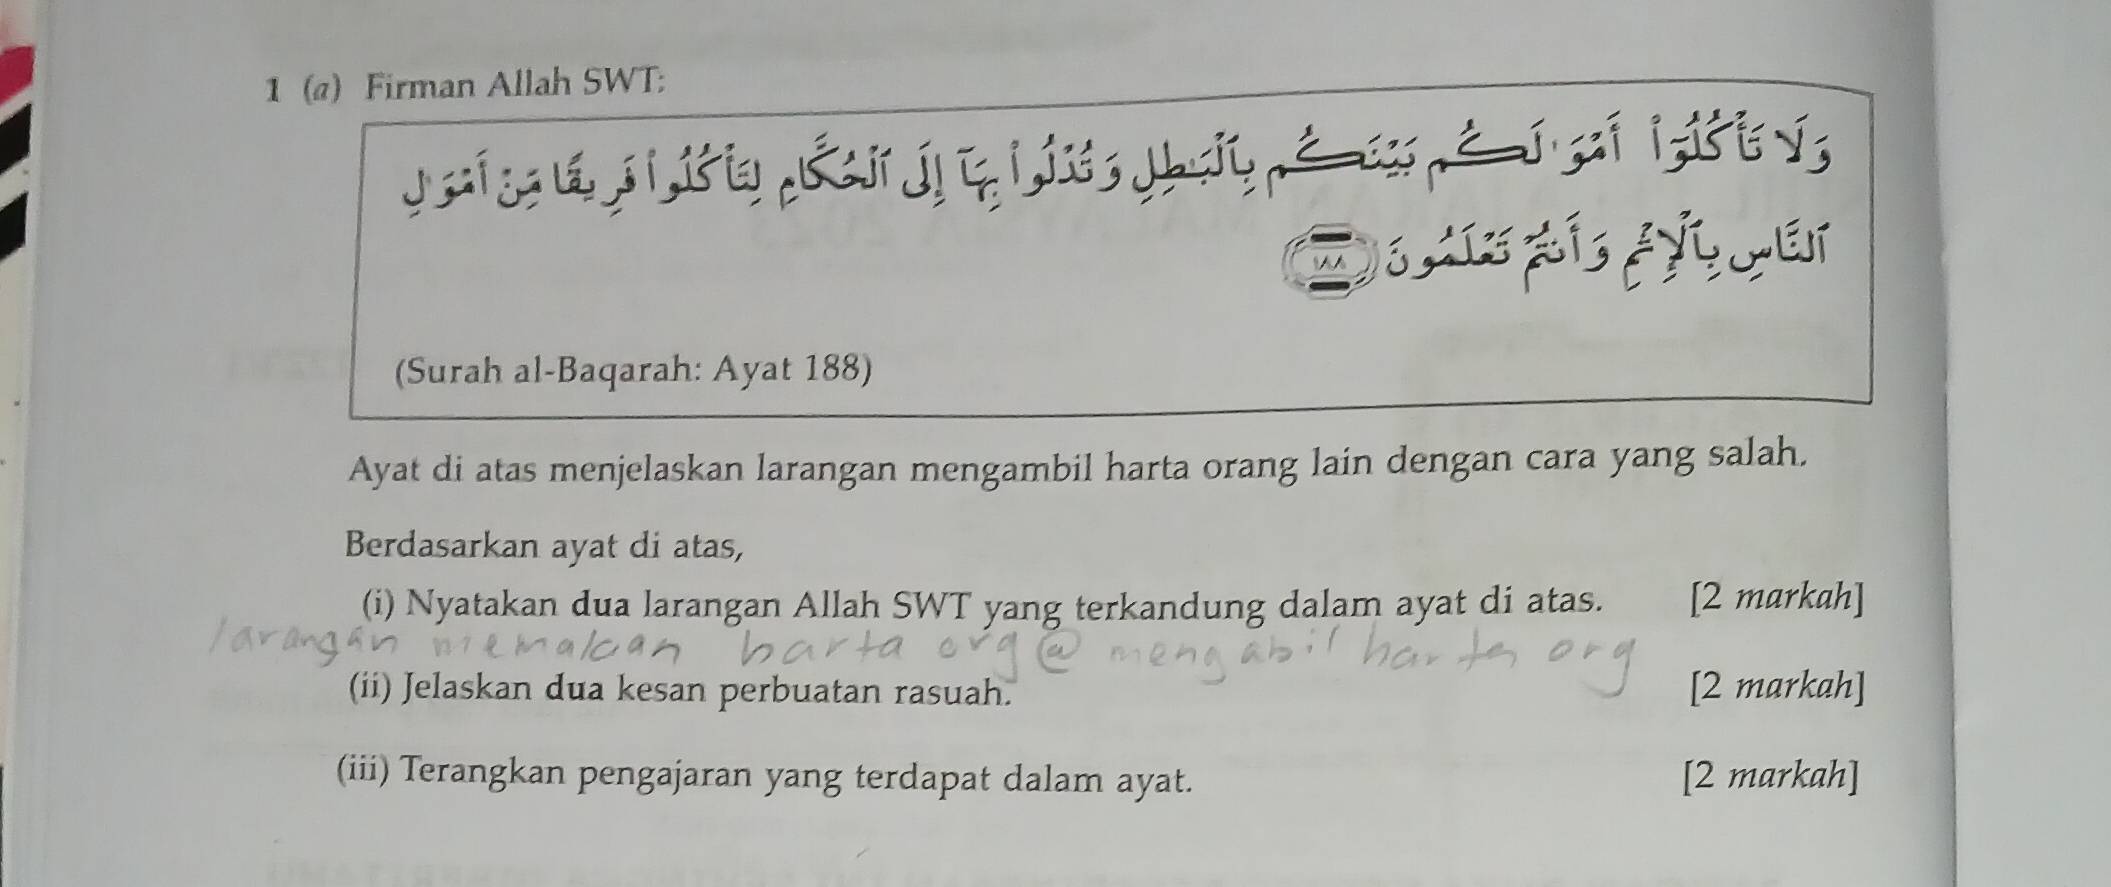 1 (a) Firman Allah SWT:
وَلَا تَأْكُلُوٓا۟ أَمْوَٰلَكُم بَيْنَكُم بِٱلْبَٰطِلِ وَتُدْلُوا۟ بِهَآ إِلَى ٱلْحُكَّامِ لِتَأْكُلُوا۟ فَرِيقًا مِّنْ أَمْوَٰلِ
ٱلنَّاسِ بِٱلْإِثْمِ وَأَنتُمْ تَعْلَمُونَ ١٨٨
(Surah al-Baqarah: Ayat 188)
Ayat di atas menjelaskan larangan mengambil harta orang lain dengan cara yang salah.
Berdasarkan ayat di atas,
(i) Nyatakan dua larangan Allah SWT yang terkandung dalam ayat di atas. [2 markah]
larangan memakan harta org @ mengabil harta org
(ii) Jelaskan dua kesan perbuatan rasuah. [2 markah]
(iii) Terangkan pengajaran yang terdapat dalam ayat. [2 markah]